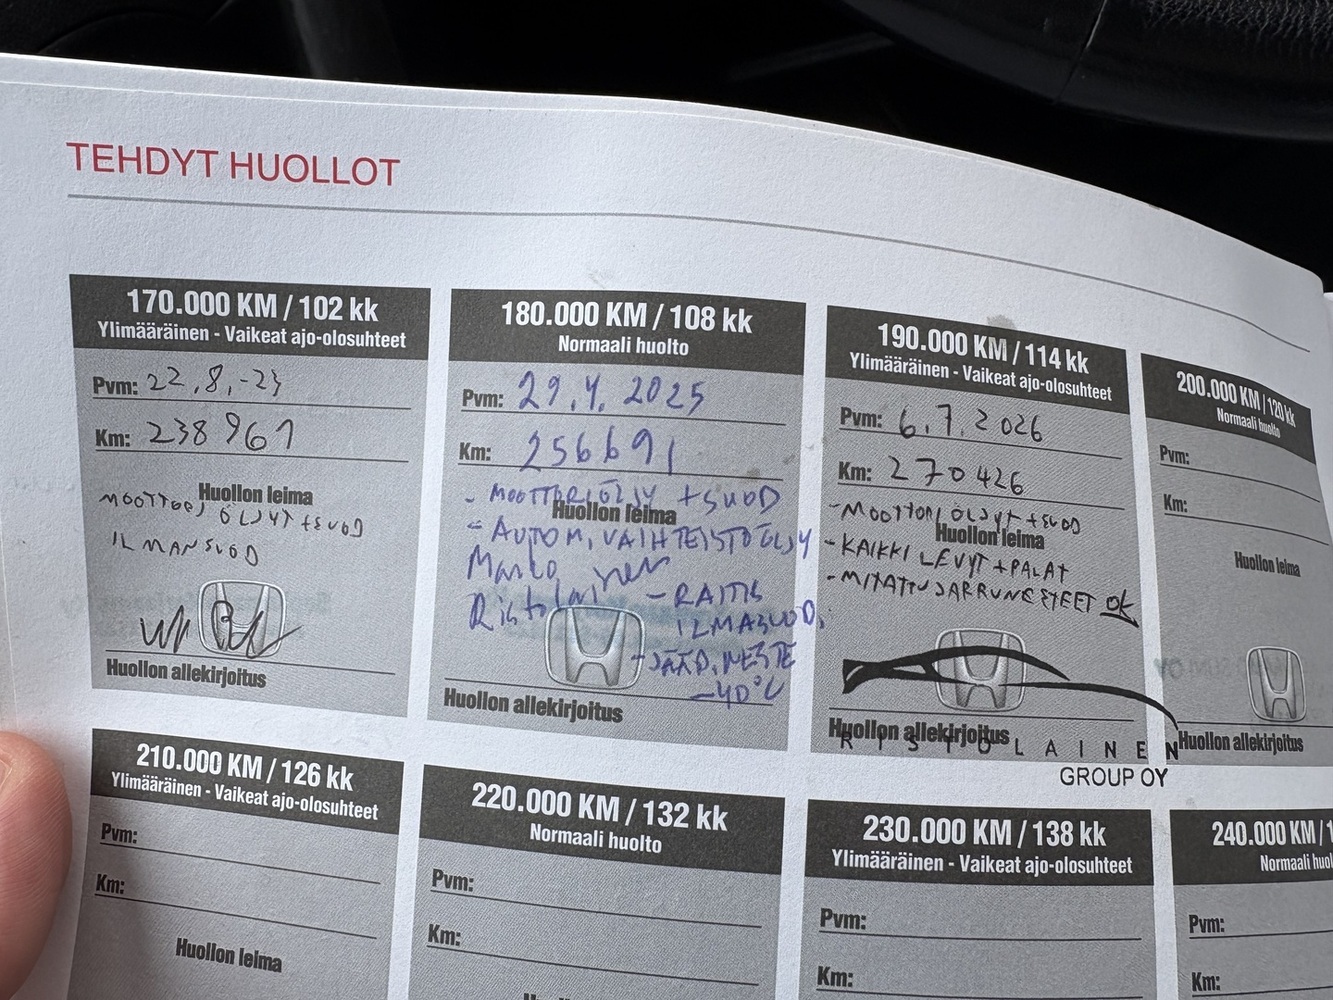 TEHDYT HUOLLOT
170.000 KM / 102 kk
Ylimääräinen - Vaikeat ajo-olosuhteet
Pvm: 22.8.-23
Km: 238961
Huollon leima
MOOTTORI ÖLJYT + SUOD
ILMANSUOD
Huollon allekirjoitus
180.000 KM / 108 kk
Normaali huolto
Pvm: 29.4.2025
Km: 256691
- MOOTTORIÖLJY + SUOD
Huollon leima
- AUTOM. VAIHTEISTOÖLJY
Marko
Ristolainen
- RAITIS
ILMASUOD.
- JÄÄD.NESTE
-40°C
Huollon allekirjoitus
190.000 KM / 114 kk
Ylimääräinen - Vaikeat ajo-olosuhteet
Pvm: 6.7.2026
Km: 270426
- MOOTTORI ÖLJYT + SUOD
Huollon leima
- KAIKKI LEVYT + PALAT
- MITATTU JARRUNESTEET OK
Huollon allekirjoitus
RISTOLAINEN
GROUP OY
200.000 KM / 120 kk
Normaali huolto
Pvm:
Km:
Huollon leima
Huollon allekirjoitus
210.000 KM / 126 kk
Ylimääräinen - Vaikeat ajo-olosuhteet
Pvm:
Km:
Huollon leima
220.000 KM / 132 kk
Normaali huolto
Pvm:
Km:
230.000 KM / 138 kk
Ylimääräinen - Vaikeat ajo-olosuhteet
Pvm:
Km:
240.000 KM / 1
Normaali huol
Pvm:
Km: